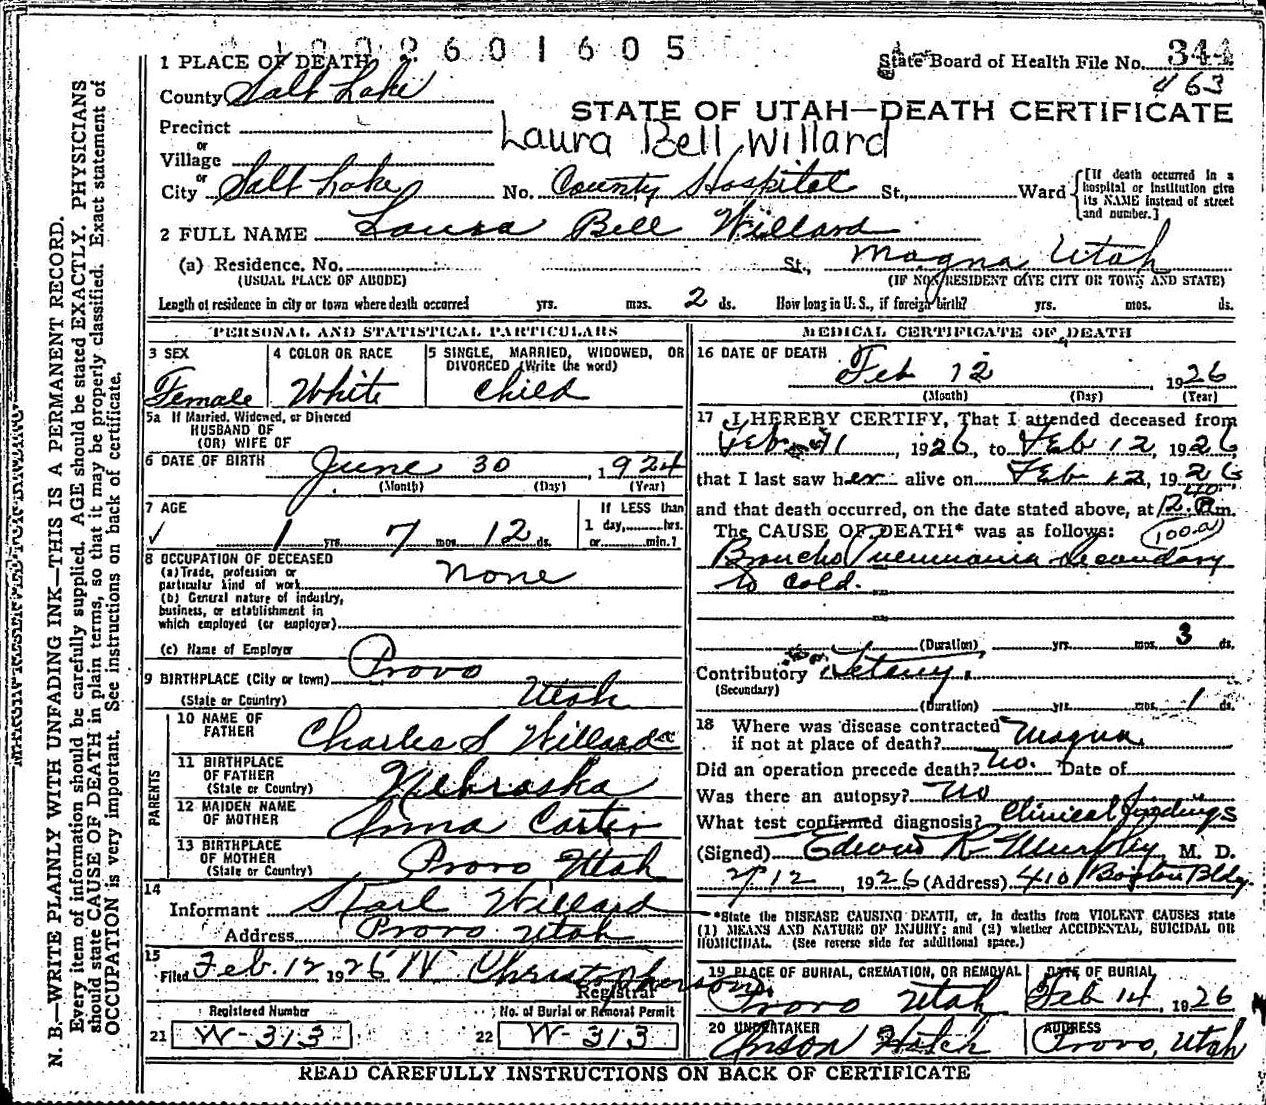 1002601605
1 PLACE OF DEATH
State Board of Health File No. 344
463
County Salt Lake
STATE OF UTAH—DEATH CERTIFICATE
Precinct
Laura Bell Willard
or
Village
or
City Salt Lake No. County Hospital St., Ward
[If death occurred in a hospital or institution give its NAME instead of street and number.]
2 FULL NAME Laura Bell Willard
(a) Residence. No. St., Magna Utah
(USUAL PLACE OF ABODE) (IF NON RESIDENT GIVE CITY OR TOWN AND STATE)
Length of residence in city or town where death occurred yrs. mos. 2 ds. How long in U. S., if foreign birth? yrs. mos. ds.
PERSONAL AND STATISTICAL PARTICULARS
3 SEX Female
4 COLOR OR RACE White
5 SINGLE, MARRIED, WIDOWED, OR DIVORCED (Write the word) child
5a If Married, Widowed, or Divorced
HUSBAND OF
(OR) WIFE OF
6 DATE OF BIRTH June 30, 1924
(Month) (Day) (Year)
7 AGE
If LESS than
1 yrs. 7 mos. 12 ds.
1 day, hrs.
or min.?
8 OCCUPATION OF DECEASED
(a) Trade, profession or
particular kind of work none
(b) General nature of industry,
business, or establishment in
which employed (or employer)
(c) Name of Employer
9 BIRTHPLACE (City or town) Provo
(State or Country) Utah
PARENTS
10 NAME OF FATHER Charles S Willard
11 BIRTHPLACE OF FATHER (State or Country) Nebraska
12 MAIDEN NAME OF MOTHER Anna Carter
13 BIRTHPLACE OF MOTHER (State or Country) Provo Utah
14
Informant Karl Willard
Address Provo Utah
15
Filed Feb. 12 1926 Christopherson
Registrar
Registered Number
21 W-313
No. of Burial or Removal Permit
22 W-313
MEDICAL CERTIFICATE OF DEATH
16 DATE OF DEATH Feb 12, 1926
(Month) (Day) (Year)
17 I HEREBY CERTIFY, That I attended deceased from
Feb 11, 1926, to Feb 12, 1926
that I last saw her alive on Feb 12, 1926
and that death occurred, on the date stated above, at 12 40 m.
The CAUSE OF DEATH* was as follows: 100-a
Broncho Pneumonia Secondary
to cold.
(Duration) yrs. mos. 3 ds.
Contributory Tetany.
(Secondary)
(Duration) yrs. mos. 1 ds.
18 Where was disease contracted
if not at place of death? Magna.
Did an operation precede death? No. Date of
Was there an autopsy? No
What test confirmed diagnosis? Clinical findings
(Signed) Edward R Murphy M. D.
2/12, 1926 (Address) 410 Boston Bldg.
*State the DISEASE CAUSING DEATH, or, in deaths from VIOLENT CAUSES state
(1) MEANS AND NATURE OF INJURY; and (2) whether ACCIDENTAL, SUICIDAL OR
HOMICIDAL. (See reverse side for additional space.)
19 PLACE OF BURIAL, CREMATION, OR REMOVAL Provo Utah
DATE OF BURIAL Feb 14, 1926
20 UNDERTAKER Anson Hatch
ADDRESS Provo, Utah
READ CAREFULLY INSTRUCTIONS ON BACK OF CERTIFICATE
N. B.—WRITE PLAINLY WITH UNFADING INK—THIS IS A PERMANENT RECORD.
Every item of information should be carefully supplied. AGE should be stated EXACTLY. PHYSICIANS
should state CAUSE OF DEATH in plain terms, so that it may be properly classified. Exact statement of
OCCUPATION is very important. See instructions on back of certificate.